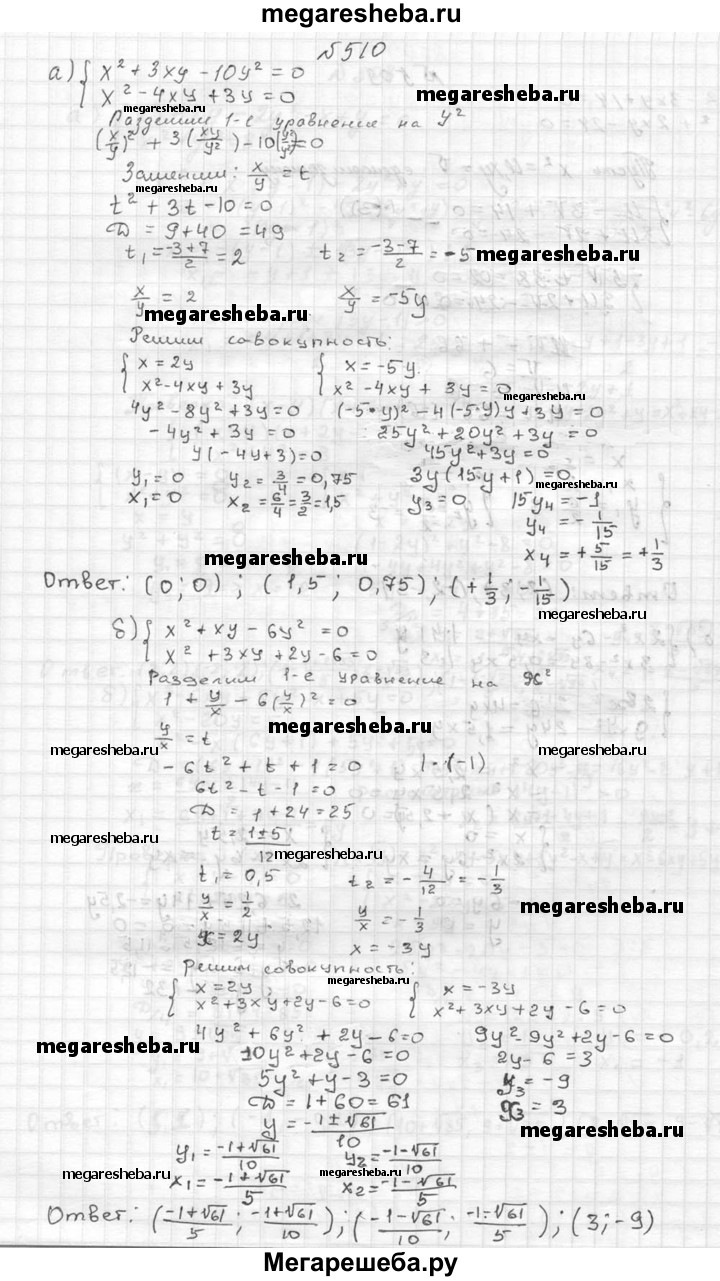 megaresheba.ru
№510
а) { x² + 3xy - 10y² = 0
x² - 4xy + 3y = 0
megaresheba.ru
megaresheba.ru
Разделим 1-е уравнение на y²
(x/y)² + 3(xy/y²) - 10(y²/y²) = 0
Заменим: x/y = t
megaresheba.ru
t² + 3t - 10 = 0
megaresheba.ru
D = 9 + 40 = 49
t₁ = (-3+7)/2 = 2 t₂ = (-3-7)/2 = -5
megaresheba.ru
x/y = 2 x/y = -5y
megaresheba.ru
Решим совокупность:
{ x = 2y { x = -5y
x² - 4xy + 3y x² - 4xy + 3y = 0
megaresheba.ru
4y² - 8y² + 3y = 0 (-5·y)² - 4(-5·y)y + 3y = 0
-4y² + 3y = 0 25y² + 20y² + 3y = 0
y(-4y+3) = 0 45y² + 3y = 0
y₁ = 0 y₂ = 3/4 = 0,75 3y(15·y+1) = 0
megaresheba.ru
x₁ = 0 x₂ = 6/4 = 3/2 = 1,5 y₃ = 0 15y₄ = -1
y₄ = -1/15
x₄ = +5/15 = +1/3
megaresheba.ru
Ответ: (0; 0); (1,5; 0,75); (+1/3; -1/15)
megaresheba.ru
б) { x² + xy - 6y² = 0
x² + 3xy + 2y - 6 = 0
Разделим 1-е уравнение на x²
1 + y/x - 6(y/x)² = 0
megaresheba.ru
y/x = t
megaresheba.ru
megaresheba.ru
-6t² + t + 1 = 0 |·(-1)
6t² - t - 1 = 0
D = 1 + 24 = 25
megaresheba.ru
t = (1±5)/12
megaresheba.ru
t₁ = 0,5 t₂ = -4/12 = -1/3
y/x = 1/2 y/x = -1/3
megaresheba.ru
x = 2y x = -3y
Решим совокупность:
megaresheba.ru
{ x = 2y; { x = -3y
x² + 3xy + 2y - 6 = 0 x² + 3xy + 2y - 6 = 0
4y² + 6y² + 2y - 6 = 0 9y² - 9y² + 2y - 6 = 0
megaresheba.ru
10y² + 2y - 6 = 0 2y - 6 = 3
5y² + y - 3 = 0 y₃ = -9
D = 1 + 60 = 61 x₃ = 3
y = -(1±√61)/10
megaresheba.ru
y₁ = (-1+√61)/10 y₂ = (-1-√61)/10
megaresheba.ru
megaresheba.ru
x₁ = (-1+√61)/5 x₂ = (-1-√61)/5
Ответ: ((-1+√61)/5; (-1+√61)/10); ((-1-√61)/10; (-1-√61)/5); (3; -9)
Мегарешеба.ру